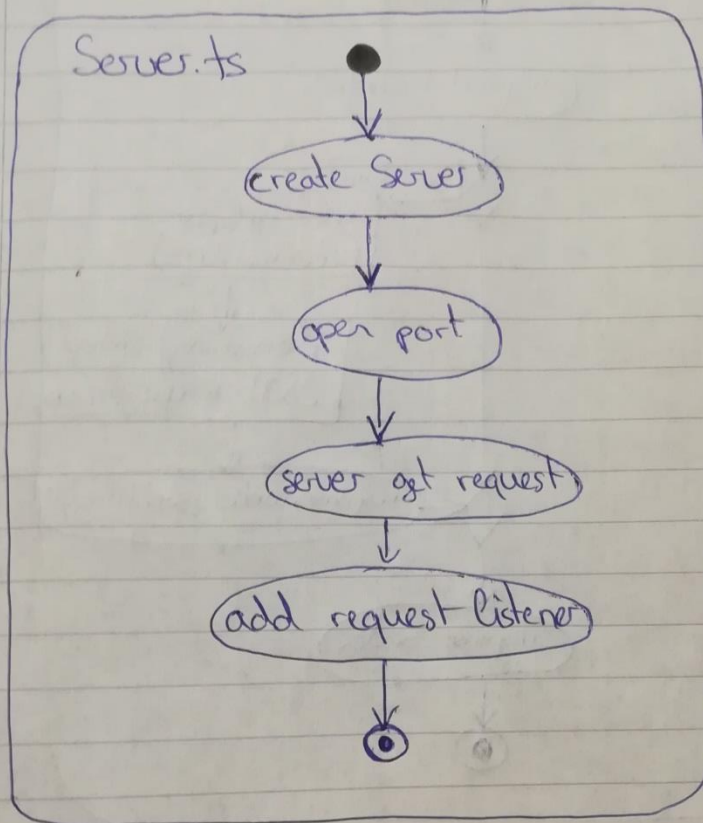 Server.ts
create Server
open port
server get request
add request listener